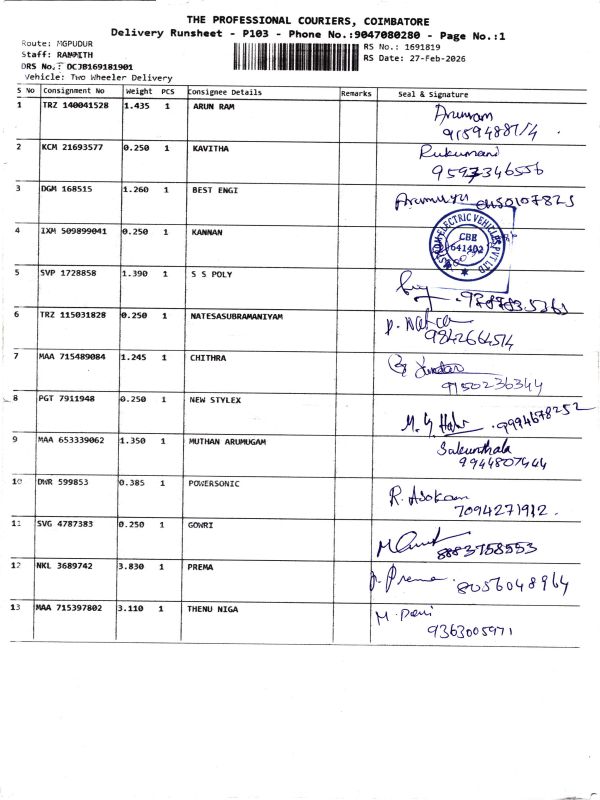 THE PROFESSIONAL COURIERS, COIMBATORE
Delivery Runsheet - P103 - Phone No.:9047080280 - Page No.:1
Route: MGPUDUR
RS No.: 1691819
Staff: RANJITH
RS Date: 27-Feb-2026
DRS No.: DCJB169181901
Vehicle: Two Wheeler Delivery
S No Consignment No Weight PCS Consignee Details Remarks Seal & Signature
1 TRZ 140041528 1.435 1 ARUN RAM Arunram
2 KCM 21693577 0.250 1 KAVITHA Rukumani
9597346556
3 DGM 168515 1.260 1 BEST ENGI
4 IXM 509899041 0.250 1 KANNAN
ELECTRIC VEHICLES PVT LTD
CBE
641402
5 SVP 1728858 1.390 1 S S POLY
6 TRZ 115031828 0.250 1 NATESASUBRAMANIYAM
9842664514
7 MAA 715489084 1.245 1 CHITHRA
9150236344
8 PGT 7911948 0.250 1 NEW STYLEX
9994678252
9 MAA 653339062 1.350 1 MUTHAN ARUMUGAM Sakunthala
9944807444
10 DWR 599853 0.385 1 POWERSONIC R. Asokan
7094271912.
11 SVG 4787383 0.250 1 GOWRI
8883758553
12 NKL 3689742 3.830 1 PREMA P. Prema
8056048964
13 MAA 715397802 3.110 1 THENU NIGA M. Devi
9363005971